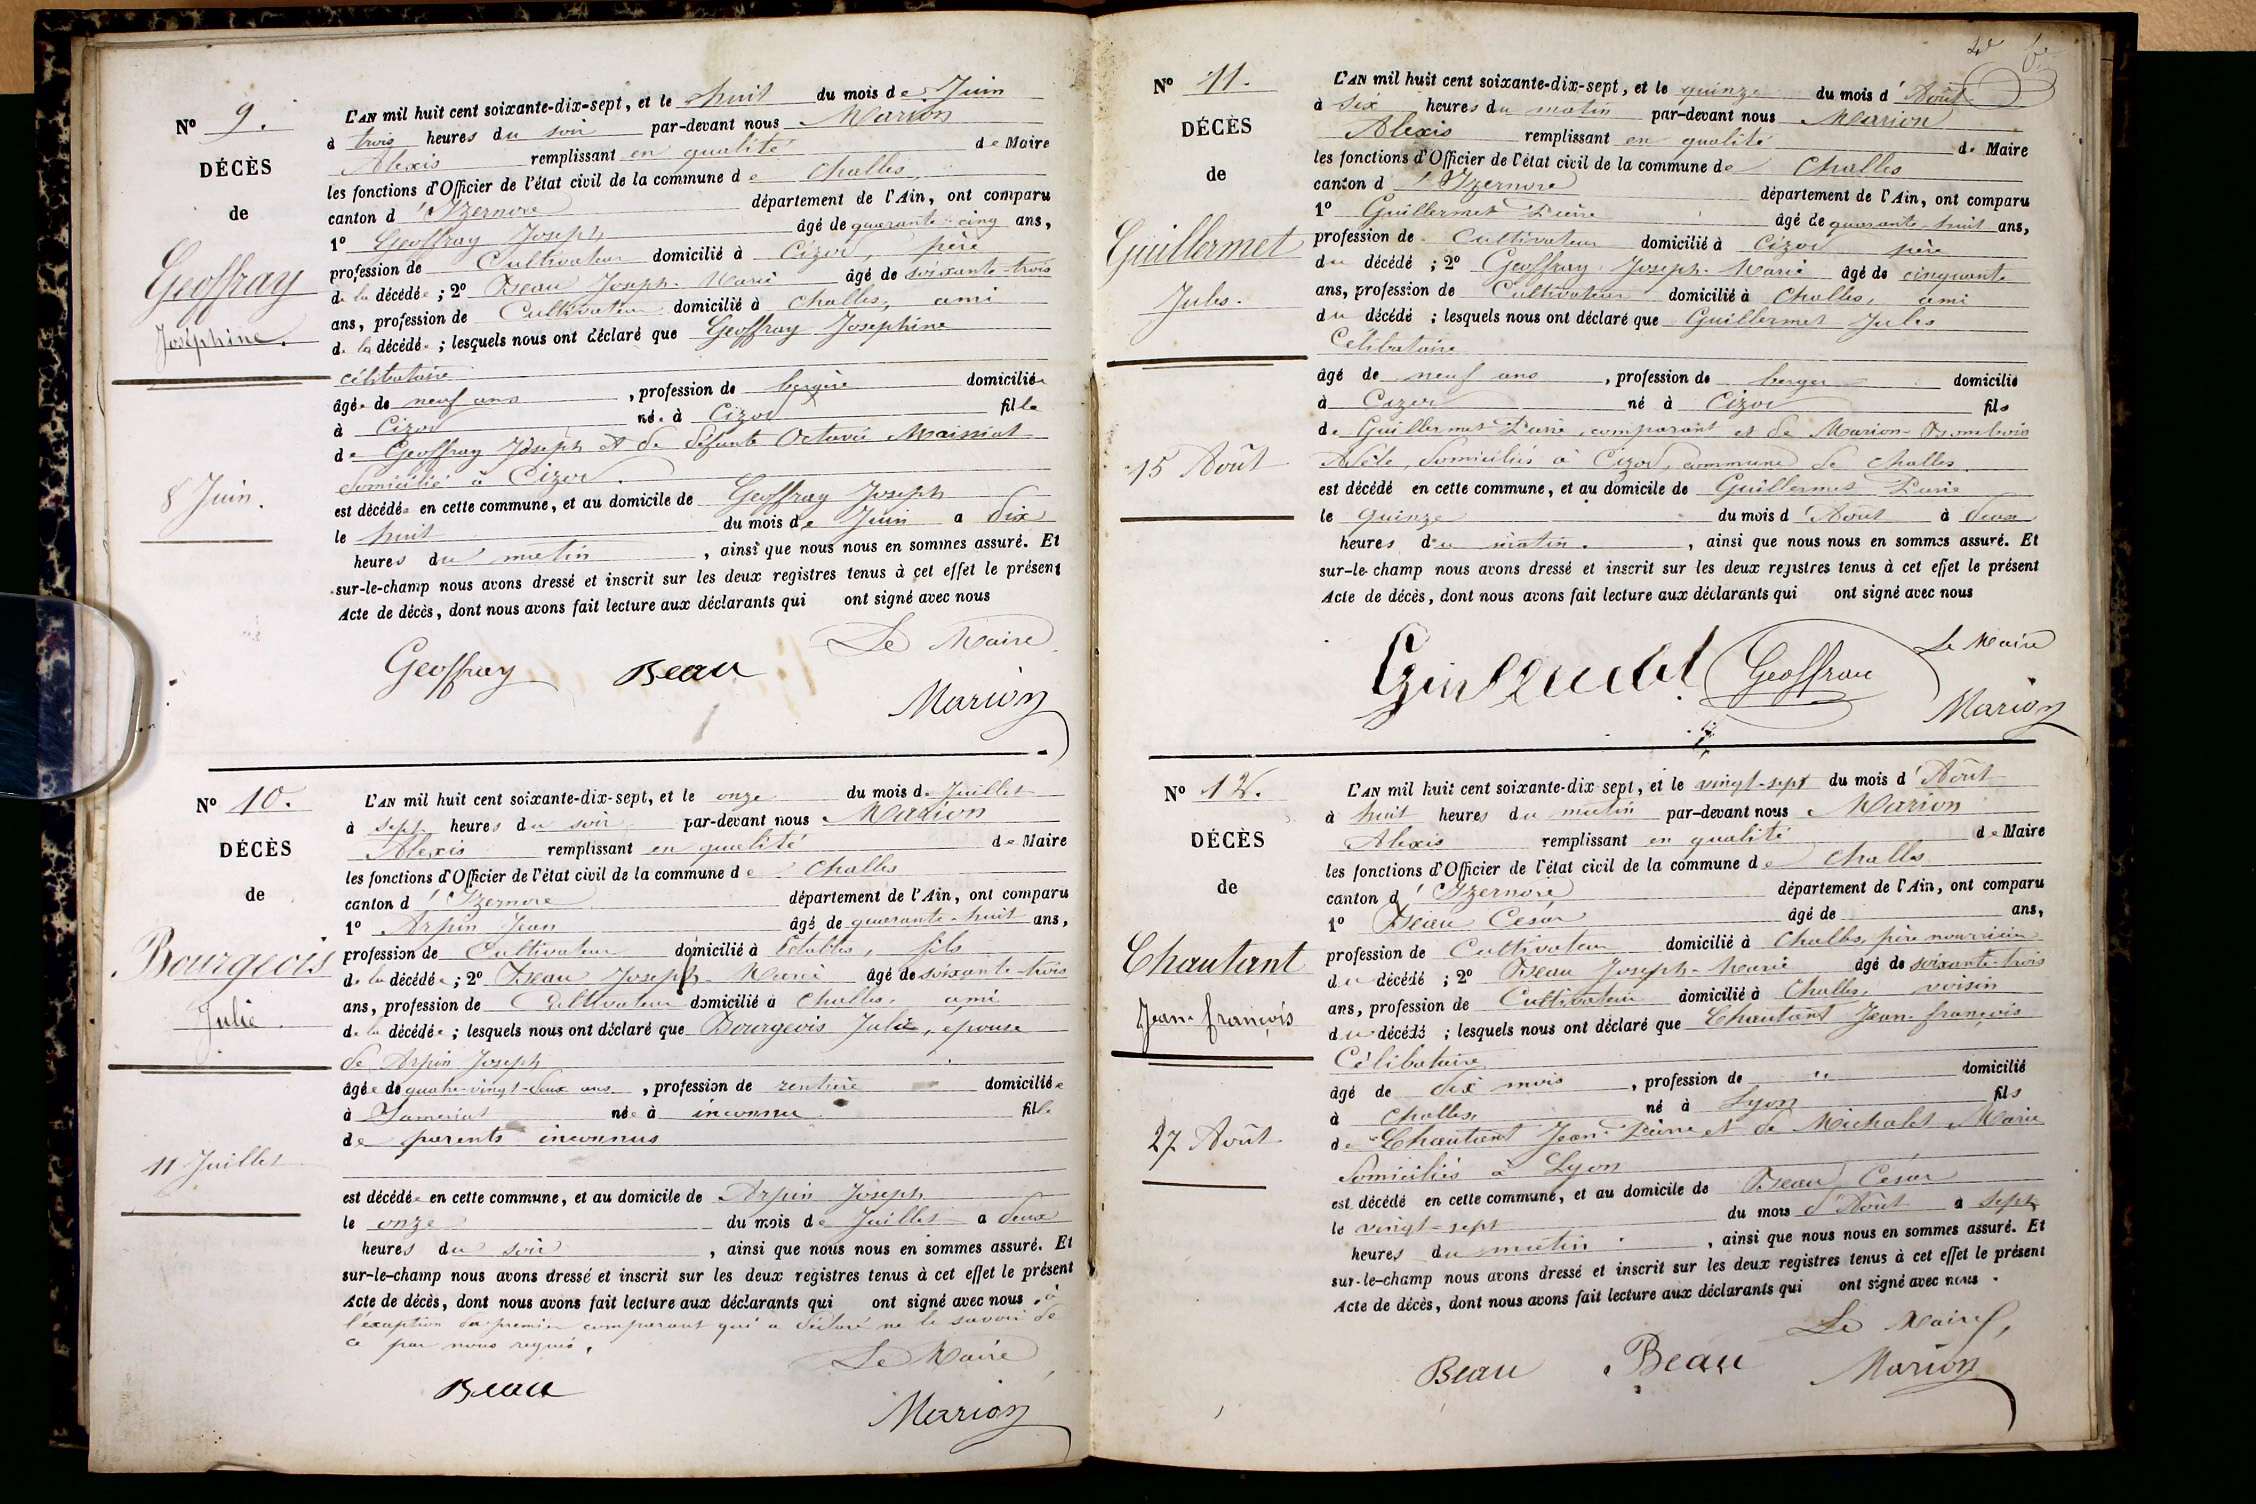 Nº 9.
DÉCÈS
de
Geoffray
Joséphine.
8 Juin.
L'AN mil huit cent soixante-dix-sept, et le huit du mois de Juin
à trois heures du soir par-devant nous Marion
Alexis remplissant en qualité de Maire
les fonctions d'Officier de l'état civil de la commune de Challes
canton d'Izernore département de l'Ain, ont comparu
1º Geoffray Joseph âgé de quarante-cinq ans,
profession de Cultivateur domicilié à Cizod, père
de la décédée ; 2º Beau Joseph-Marie âgé de soixante-trois
ans, profession de Cultivateur domicilié à Challes, ami
de la décédée ; lesquels nous ont déclaré que Geoffray Josephine
célibataire
âgée de neuf ans , profession de bergère domiciliée
à Cizod née à Cizod fille
de Geoffray Joseph et de défunte Octavie Maissiat
domicilié à Cizod.
est décédée en cette commune, et au domicile de Geoffray Joseph
le huit du mois de Juin a dix
heures du matin , ainsi que nous nous en sommes assuré. Et
sur-le-champ nous avons dressé et inscrit sur les deux registres tenus à cet effet le présent
Acte de décès, dont nous avons fait lecture aux déclarants qui ont signé avec nous
Le Maire
Geoffray Beau
Marion
Nº 10.
DÉCÈS
de
Bourgeois
Julie
11 Juillet
L'AN mil huit cent soixante-dix-sept, et le onze du mois de Juillet
à sept heures du soir par-devant nous Marion
Alexis remplissant en qualité de Maire
les fonctions d'Officier de l'état civil de la commune de Challes
canton d'Izernore département de l'Ain, ont comparu
1º Arpin Jean âgé de quarante-huit ans,
profession de Cultivateur domicilié à Etables, fils
de la décédée ; 2º Beau Joseph-Marie âgé de soixante-trois
ans, profession de Cultivateur domicilié à Challes, ami
de la décédée ; lesquels nous ont déclaré que Bourgeois Julie, epouse
de Arpin Joseph
âgée de quatre-vingt-deux ans , profession de rentière domiciliée
à née à inconnu fille
de parents inconnus
est décédée en cette commune, et au domicile de Arpin Joseph
le onze du mois de Juillet a deux
heures du soir , ainsi que nous nous en sommes assuré. Et
sur-le-champ nous avons dressé et inscrit sur les deux registres tenus à cet effet le présent
Acte de décès, dont nous avons fait lecture aux déclarants qui ont signé avec nous à
l'exception du premier comparant qui a déclaré ne le savoir de
ce par nous requis.
Le Maire
Beau
Marion
Nº 11.
DÉCÈS
de
Guillermet
Jules.
15 Août
L'AN mil huit cent soixante-dix-sept, et le quinze du mois d'Août
à six heures du matin par-devant nous Marion
Alexis remplissant en qualité de Maire
les fonctions d'Officier de l'état civil de la commune de Challes
canton d'Izernore département de l'Ain, ont comparu
1º Guillermet Pierre âgé de quarante-huit ans,
profession de Cultivateur domicilié à Cizod père
du décédé ; 2º Geoffray Joseph-Marie âgé de cinquante
ans, profession de Cultivateur domicilié à Challes, ami
du décédé ; lesquels nous ont déclaré que Guillermet Jules
Célibataire
âgé de neuf ans , profession de berger domicilié
à Cizod né à Cizod fils
de Guillermet Pierre, comparant et de Marion-Bombois
Adèle, domiciliés à Cizod, commune de Challes
est décédé en cette commune, et au domicile de Guillermet Pierre
le quinze du mois d'Août à deux
heures du matin. , ainsi que nous nous en sommes assuré. Et
sur-le-champ nous avons dressé et inscrit sur les deux registres tenus à cet effet le présent
Acte de décès, dont nous avons fait lecture aux déclarants qui ont signé avec nous
Le Maire
Geoffray
Marion
Nº 12.
DÉCÈS
de
Chautant
Jean-françois
27 Août
L'AN mil huit cent soixante-dix sept, et le vingt-sept du mois d'Août
à huit heures du matin par-devant nous Marion
Alexis remplissant en qualité de Maire
les fonctions d'Officier de l'état civil de la commune de Challes
canton d'Izernore département de l'Ain, ont comparu
1º Beau César âgé de ans,
profession de Cultivateur domicilié à Challes, père nourricier
du décédé ; 2º Beau Joseph-Marie âgé de soixante-trois
ans, profession de Cultivateur domicilié à Challes, voisin
du décédé ; lesquels nous ont déclaré que Chautant Jean-françois
Célibataire
âgé de dix mois , profession de " domicilié
à Challes né à Lyon fils
de Chautant Jean-Pierre et de Michalet Marie
domiciliés à Lyon
est décédé en cette commune, et au domicile de Beau César
le vingt-sept du mois d'Août à sept
heures du matin , ainsi que nous nous en sommes assuré. Et
sur-le-champ nous avons dressé et inscrit sur les deux registres tenus à cet effet le présent
Acte de décès, dont nous avons fait lecture aux déclarants qui ont signé avec nous.
Le Maire,
Beau Beau Marion